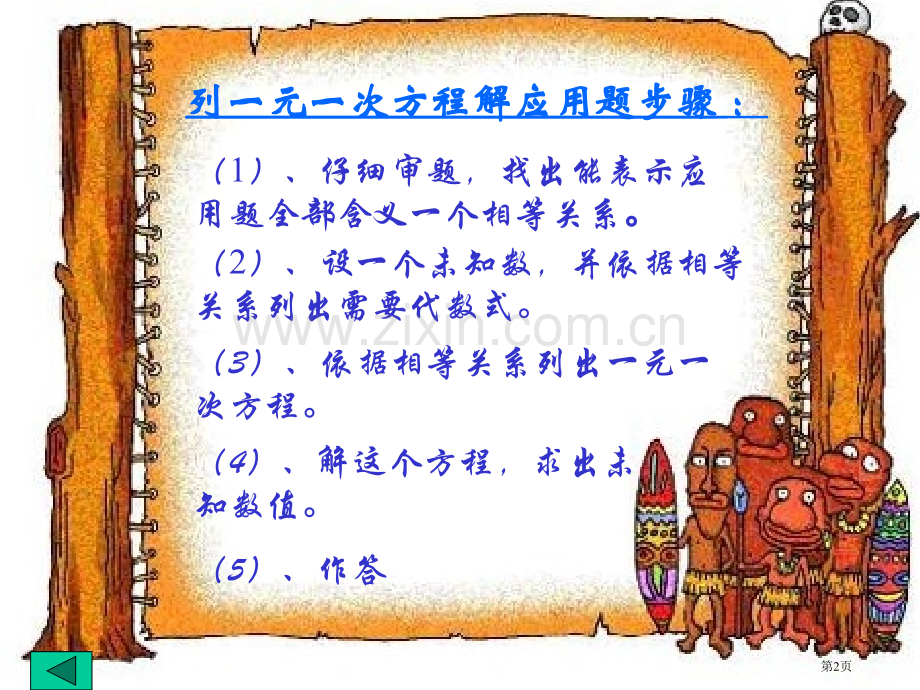 列一元一次方程解应用题步骤：
（1）、仔细审题，找出能表示应
用题全部含义一个相等关系。
（2）、设一个未知数，并依据相等
关系列出需要代数式。
www.zixin.com.cn
（3）、依据相等关系列出一元一
次方程。
（4）、解这个方程，求出未
知数值。
（5）、作答
第2页